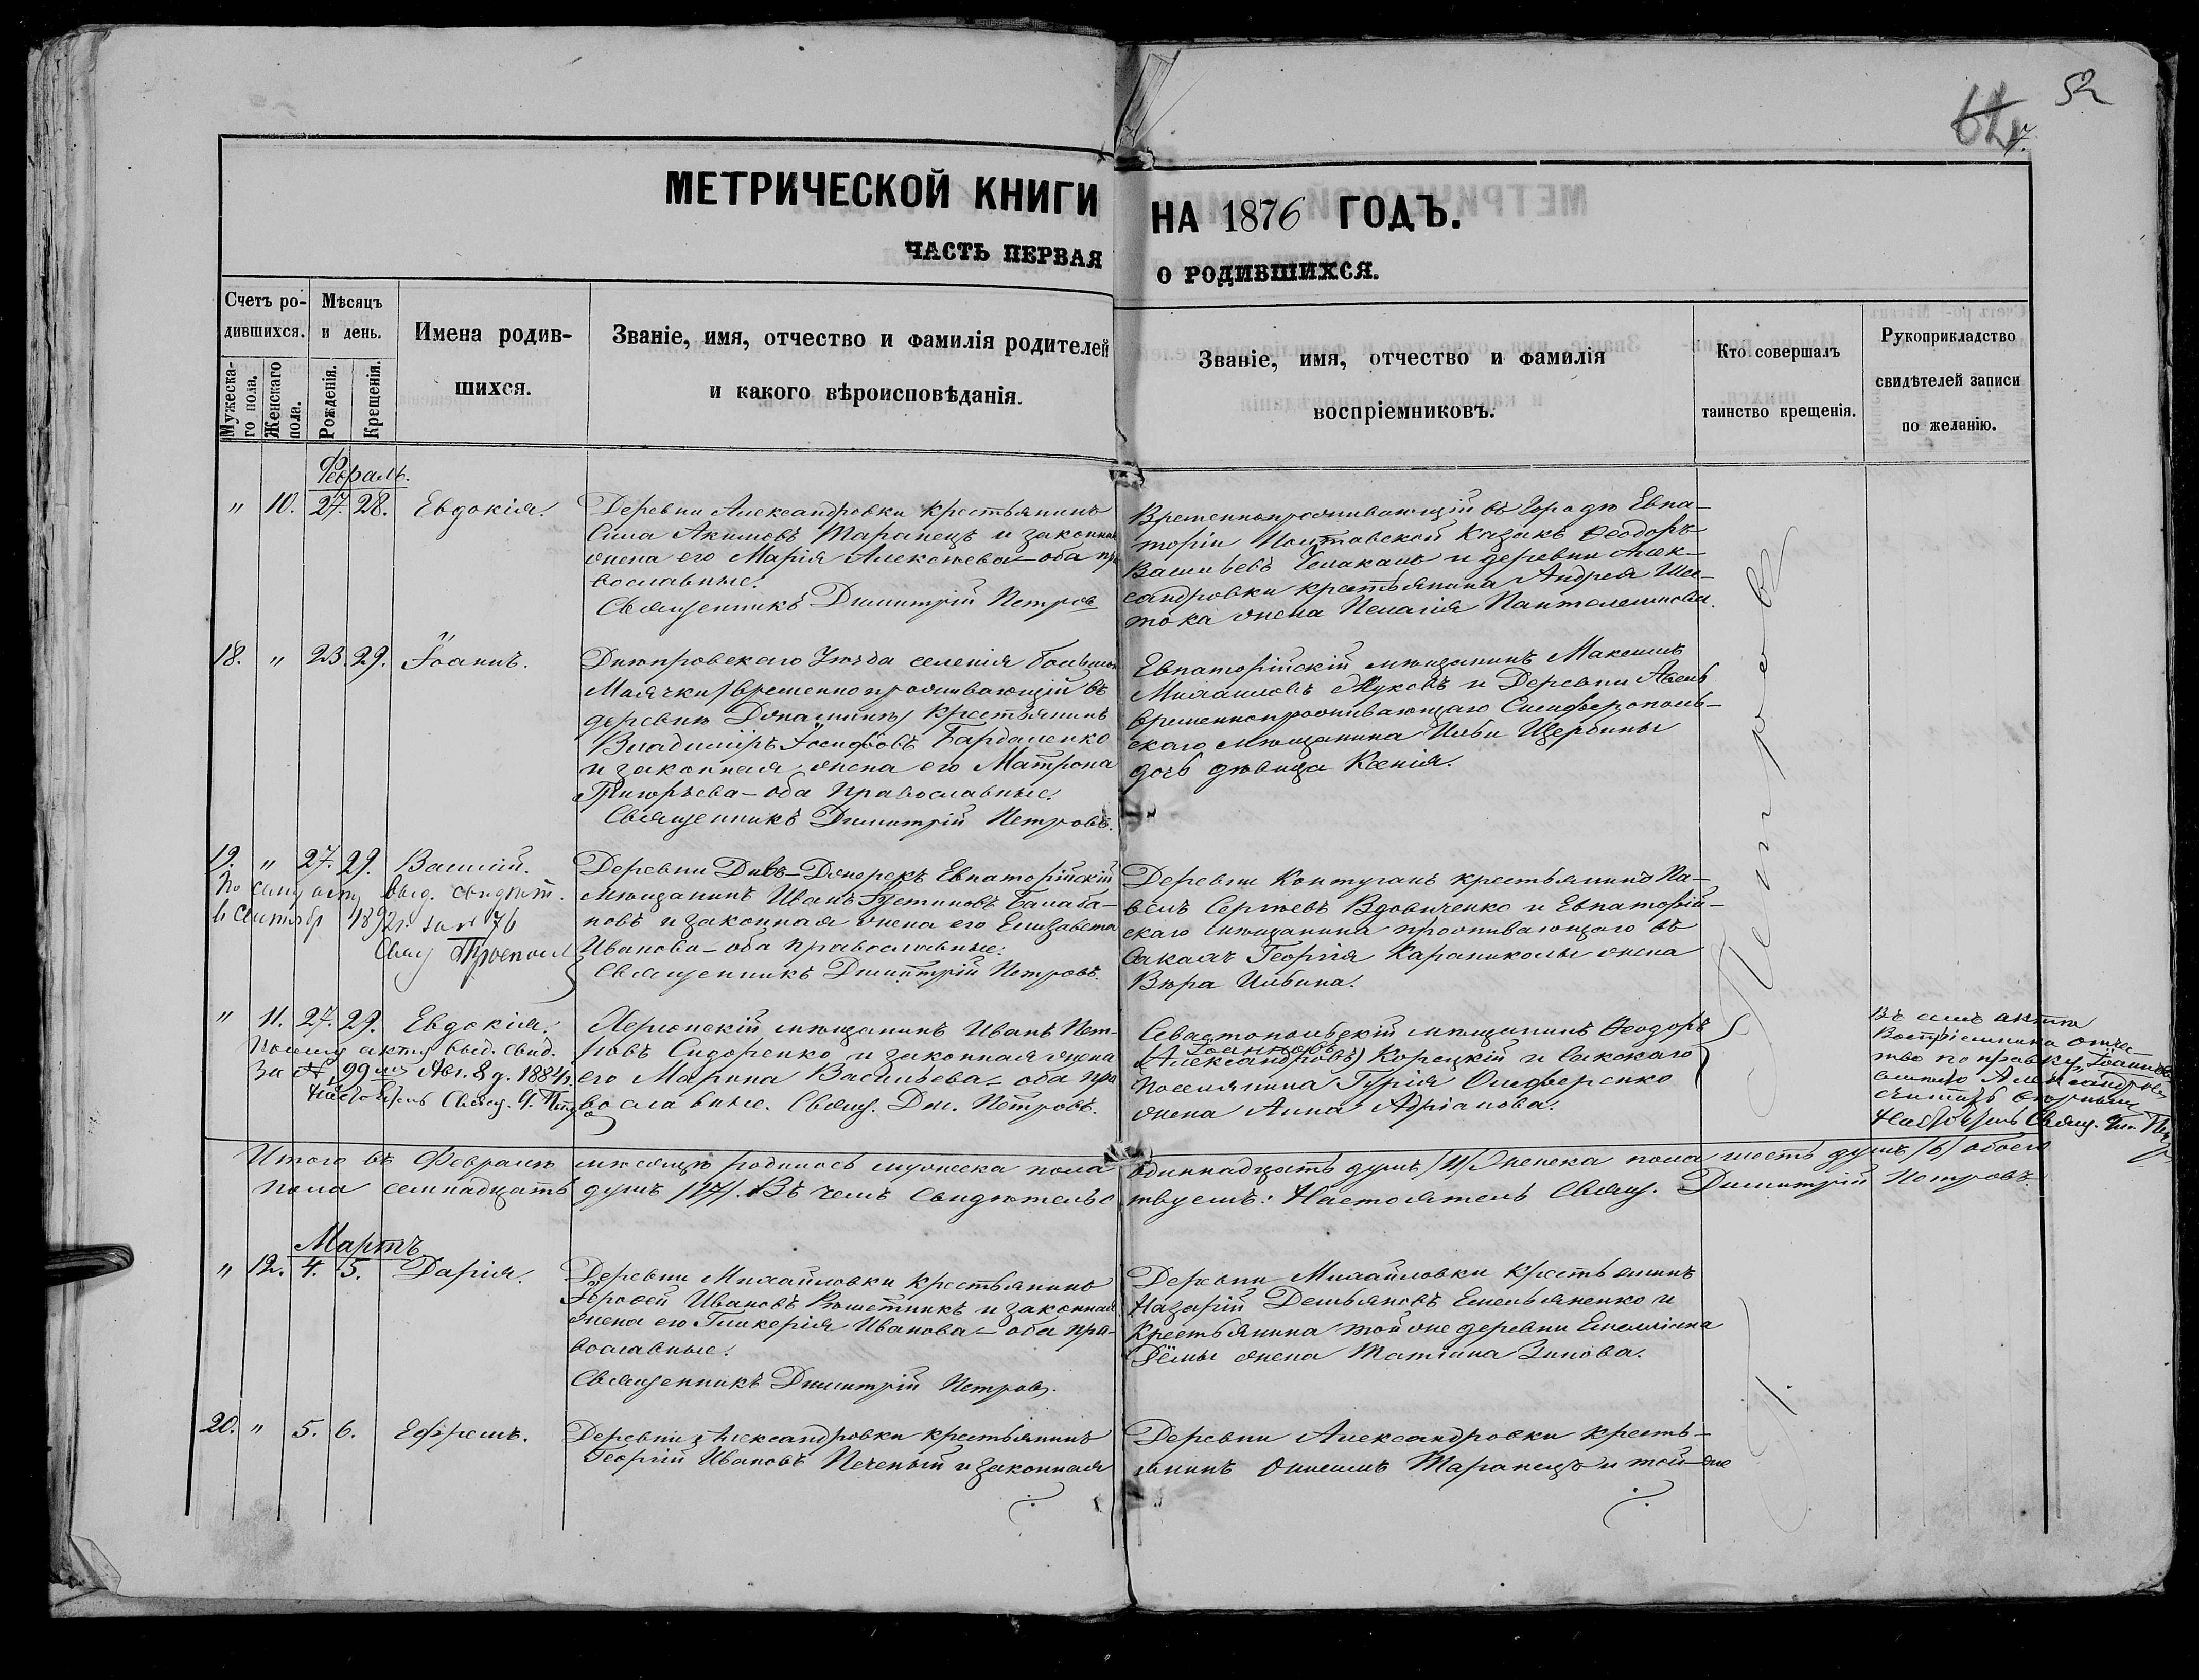 52
62
7.
МЕТРИЧЕСКОЙ КНИГИ НА 1876 ГОДЪ.
ЧАСТЬ ПЕРВАЯ О РОДИВШИХСЯ.
Счетъ родившихся.
Мужескаго пола.
Женскаго пола.
Мѣсяцъ и день.
Рожденія.
Крещенія.
Имена родившихся.
Званіе, имя, отчество и фамилія родителей
и какого вѣроисповѣданія.
Званіе, имя, отчество и фамилія
воспріемниковъ.
Кто совершалъ
таинство крещенія.
Рукоприкладство
свидѣтелей записи
по желанію.
Февраль.
" 10. 27. 28. Евдокія.
Деревни Александровки крестьянинъ
Сила Акимовъ Таранецъ и законная
жена его Марія Алексѣева – оба пра
вославные.
Священникъ Димитрій Петровъ
Временнопроживающій въ Городѣ Евпа-
торіи Полтавской Казакъ Ѳеодоръ
Васильевъ и деревни Алек-
сандровки крестьянина Андрея Шес-
тока жена Пелагія Пантелеимонова.
18. " 23. 29. Іоаннъ.
Днѣпровскаго Уѣзда селенія Большой
Маячки (временно проживающій въ
деревнѣ) крестьянинъ
Владиміръ Іосифовъ Бардаленко
и законная жена его Матрона
Григорьева – оба Православные.
Священникъ Димитрій Петровъ.
Евпаторійскій мѣщанинъ Максимъ
Михаиловъ Жуковъ и Деревни
временнопроживающаго Симферополь-
скаго мѣщанина Ильи Щербины
дочь дѣвица Ксенія.
19. " 27. 29. Василій.
По сему акту выд. свидѣт.
6 Сентябр 1892 г. за № 76
Свящ
Деревни Евпаторійскій
мѣщанинъ Иванъ Балаба-
новъ и законная жена его Елизавета
Иванова – оба православные.
Священникъ Димитрій Петровъ.
Деревни Контуганъ крестьянинъ Па-
велъ Сергѣевъ Вдовиченко и Евпаторій-
скаго мѣщанина проживающаго въ
Сакахъ Георгія Караниколы жена
Вѣра Ильина.
" 11. 27. 29. Евдокія.
По сему акту выд. свид.
за № 99 Авг. 8 д. 1884 г.
Свящ. Д.
Херсонскій мѣщанинъ Иванъ Пет-
ровъ Сидоренко и законная жена
его Марина Васильева – оба пра
вославные. Свящ. Дм. Петровъ.
Севастопольскій мѣщанинъ Ѳеодоръ
Іоанновъ
(Александровъ) Корецкій и Сакскаго
поселянина Гурія Олеференко
жена Анна Адріанова.
Въ семъ актѣ
Воспріемника отчес
тво поправку „Іоанновъ
вмѣсто Александровъ
считать вѣрнымъ
Свящ. Дм. Петр
Петровъ
Итого въ Февралѣ мѣсяцѣ родилось мужеска пола одиннадцать душъ /11/ Женска пола шесть душъ /6/ обоего
пола семнадцать душъ /17/. Въ чемъ Свидѣтельс твуемъ: Настоятель Свящ. Димитрій Петровъ.
Мартъ
" 12. 4. 5. Дарія.
Деревни Михайловки крестьянинъ
Іерофей Ивановъ Рѣшетникъ и законная
жена его Гликерія Иванова – оба пра-
вославные.
Священникъ Димитрій Петровъ.
Деревни Михайловки крестьянинъ
Назарій Демьяновъ Емельяненко и
Крестьянина той же деревни Емеліана
Дёмы жена Татіана Зинова.
20. " 5. 6. Ефремъ.
Деревни Александровки крестьянинъ
Георгій Ивановъ Печеный и законная
Деревни Александровки кресть-
янинъ Онисимъ Таранецъ и той-же